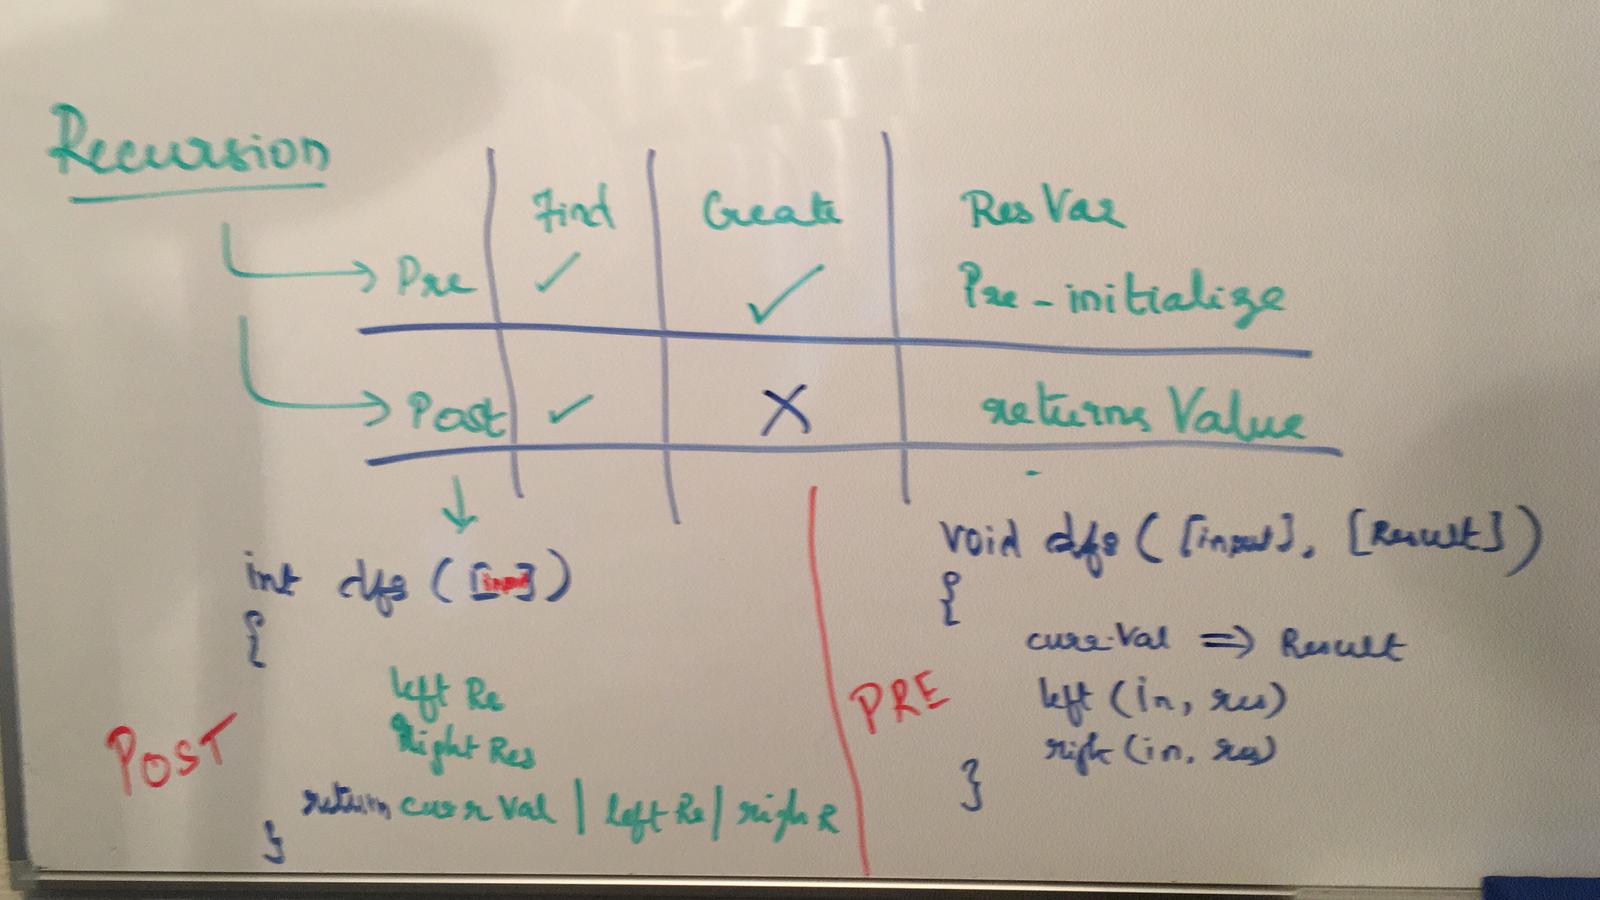 Recursion
Find Create Res Var
Pre ✓ ✓ Pre-initialize
Post ✓ X returns Value
int dfs ([input])
{
left Re
Right Res
return curr Val | left Re | righ R
}
POST
void dfs ([input], [Result])
{
curr.Val => Result
left (in, res)
righ (in, res)
}
PRE